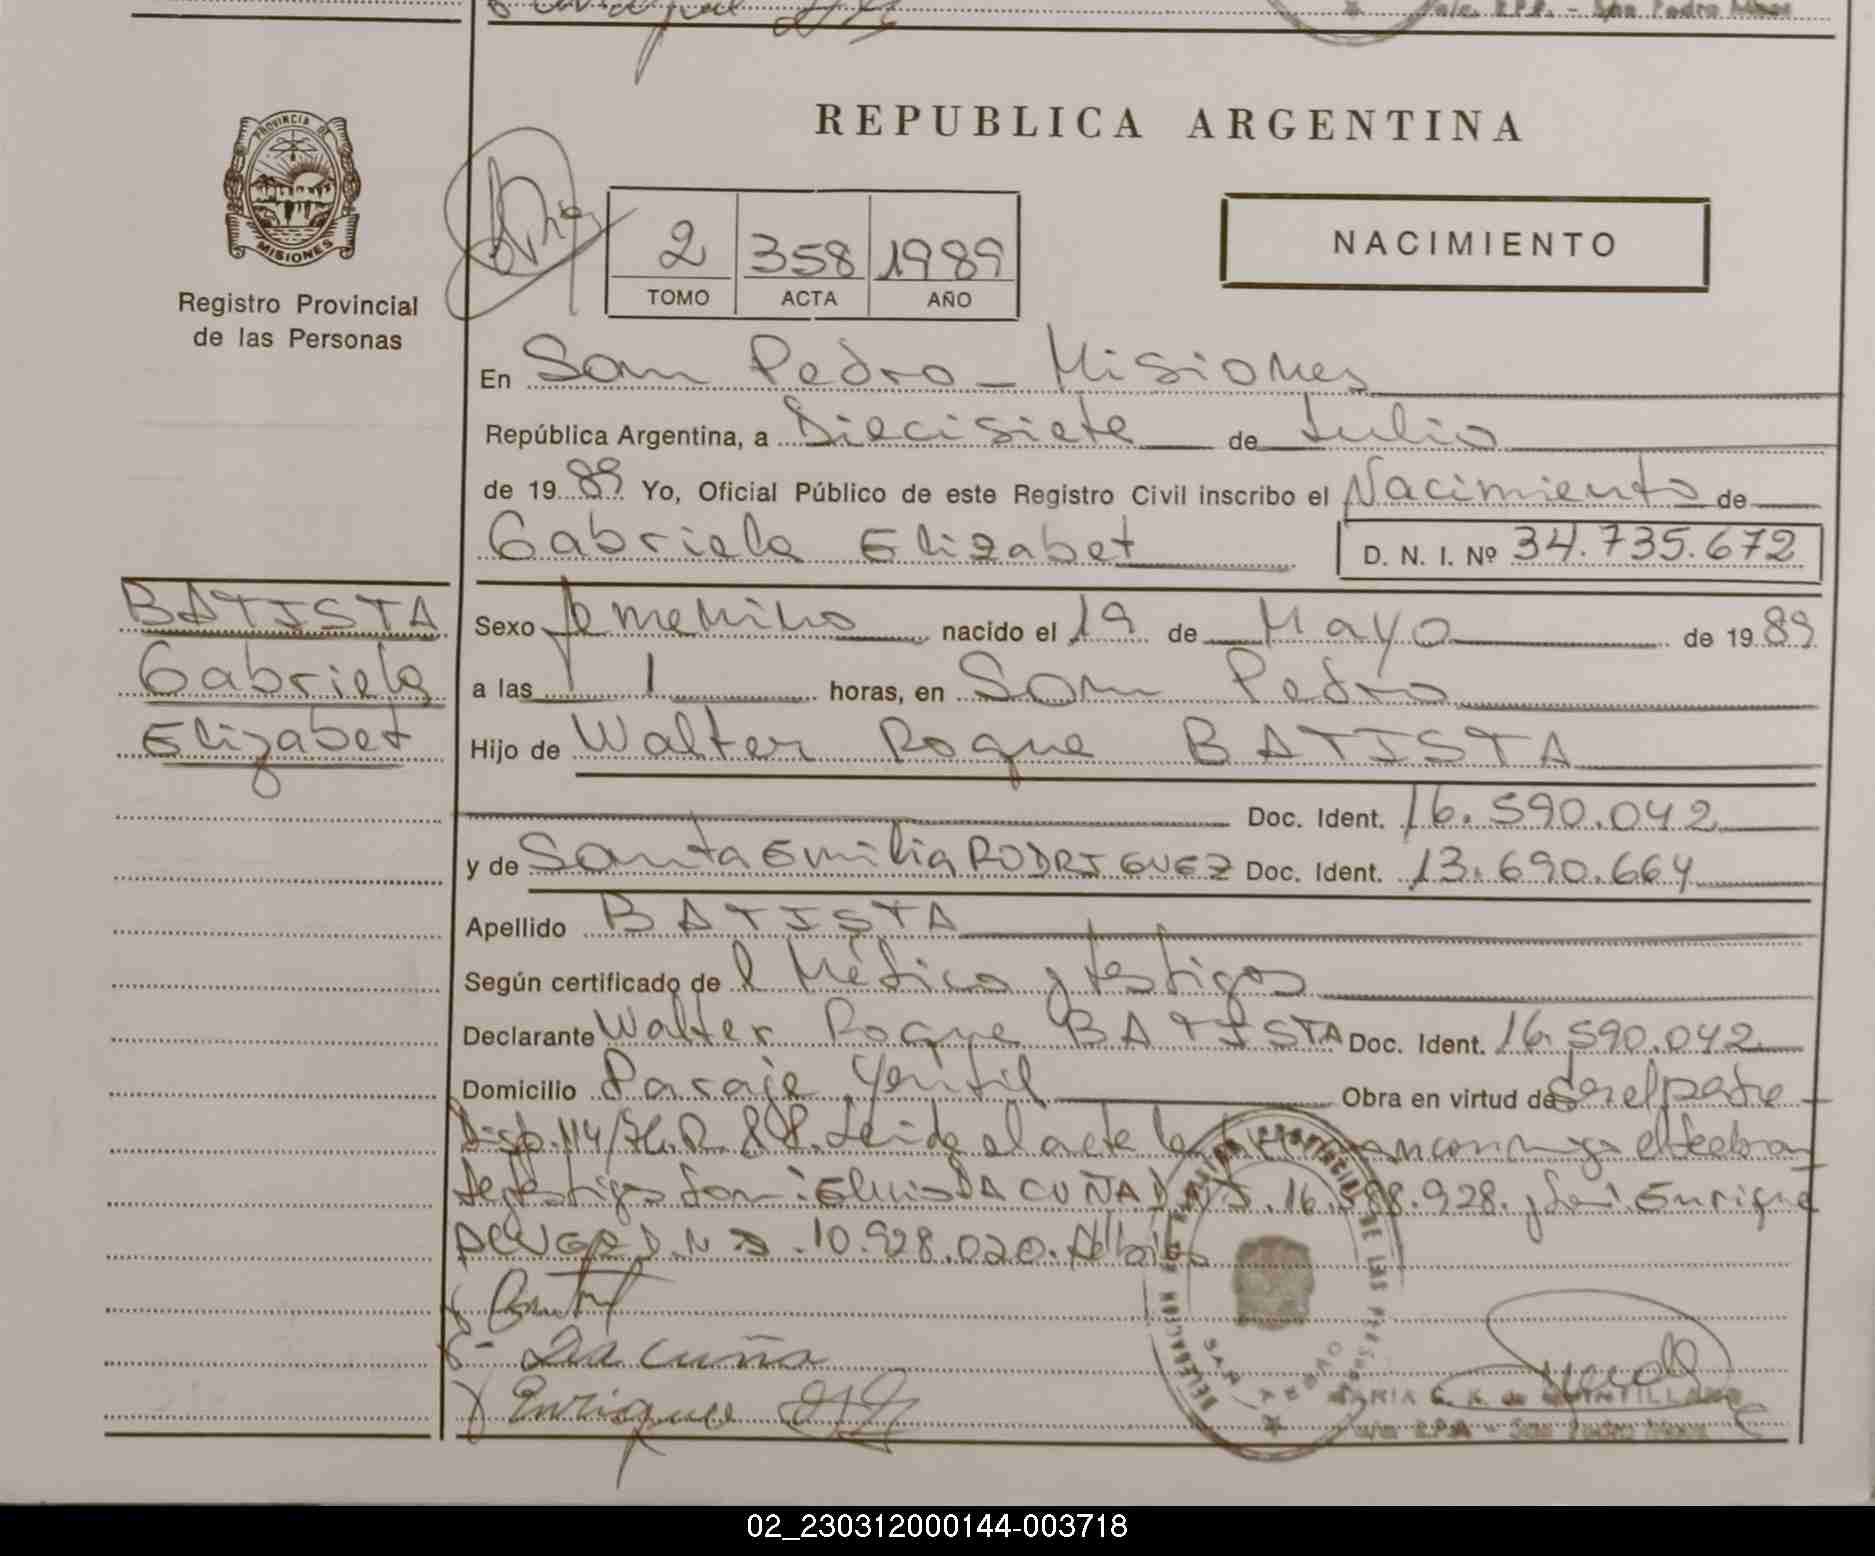 S/c. R.P.P. - San Pedro Mnes
REPUBLICA ARGENTINA
PROVINCIA DE
MISIONES
Registro Provincial
de las Personas
2 358 1989
TOMO ACTA AÑO
NACIMIENTO
En San Pedro - Misiones
República Argentina, a Diecisiete de Julio
de 1989 Yo, Oficial Público de este Registro Civil inscribo el Nacimiento de
Gabriela Elizabet D. N. I. Nº 34.735.672
BATISTA
Gabriela
Elizabet
Sexo femenino nacido el 19 de Mayo de 1989
a las 1 horas, en San Pedro
Hijo de Walter Roque BATISTA
Doc. Ident. 16.590.042
y de Santa Emilia RODRIGUEZ Doc. Ident. 13.690.664
Apellido BATISTA
Según certificado de l Médico y testigos
Declarante Walter Roque BATISTA Doc. Ident. 16.590.042
Domicilio Paraje Gentil Obra en virtud de Ser el padre
Disp. 114/76. R. 88. Leida el acta la conmigo el declaran
te testigos Son: DA CUÑA D.N.I. 16. 928. y Enrique
D.N.I. 10.928.020.
DELEGACION REGISTRO PROVINCIAL DE LAS PERSONAS
Da cuña
Enrique
MARIA G. K. de QUINTILLANO
R.P.P. - San Pedro Mnes
02_230312000144-003718